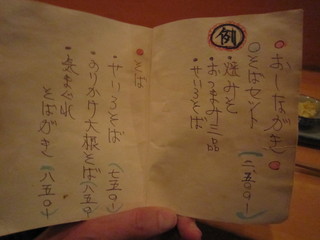 おしながき
例
○そばセット (二、五〇〇-)
・焼みそ
・おつまみ三品
・せいろそば
そば
・せいろそば (七五〇-)
・おりかけ大根そば (八五〇-)
そばがき (八五〇-)